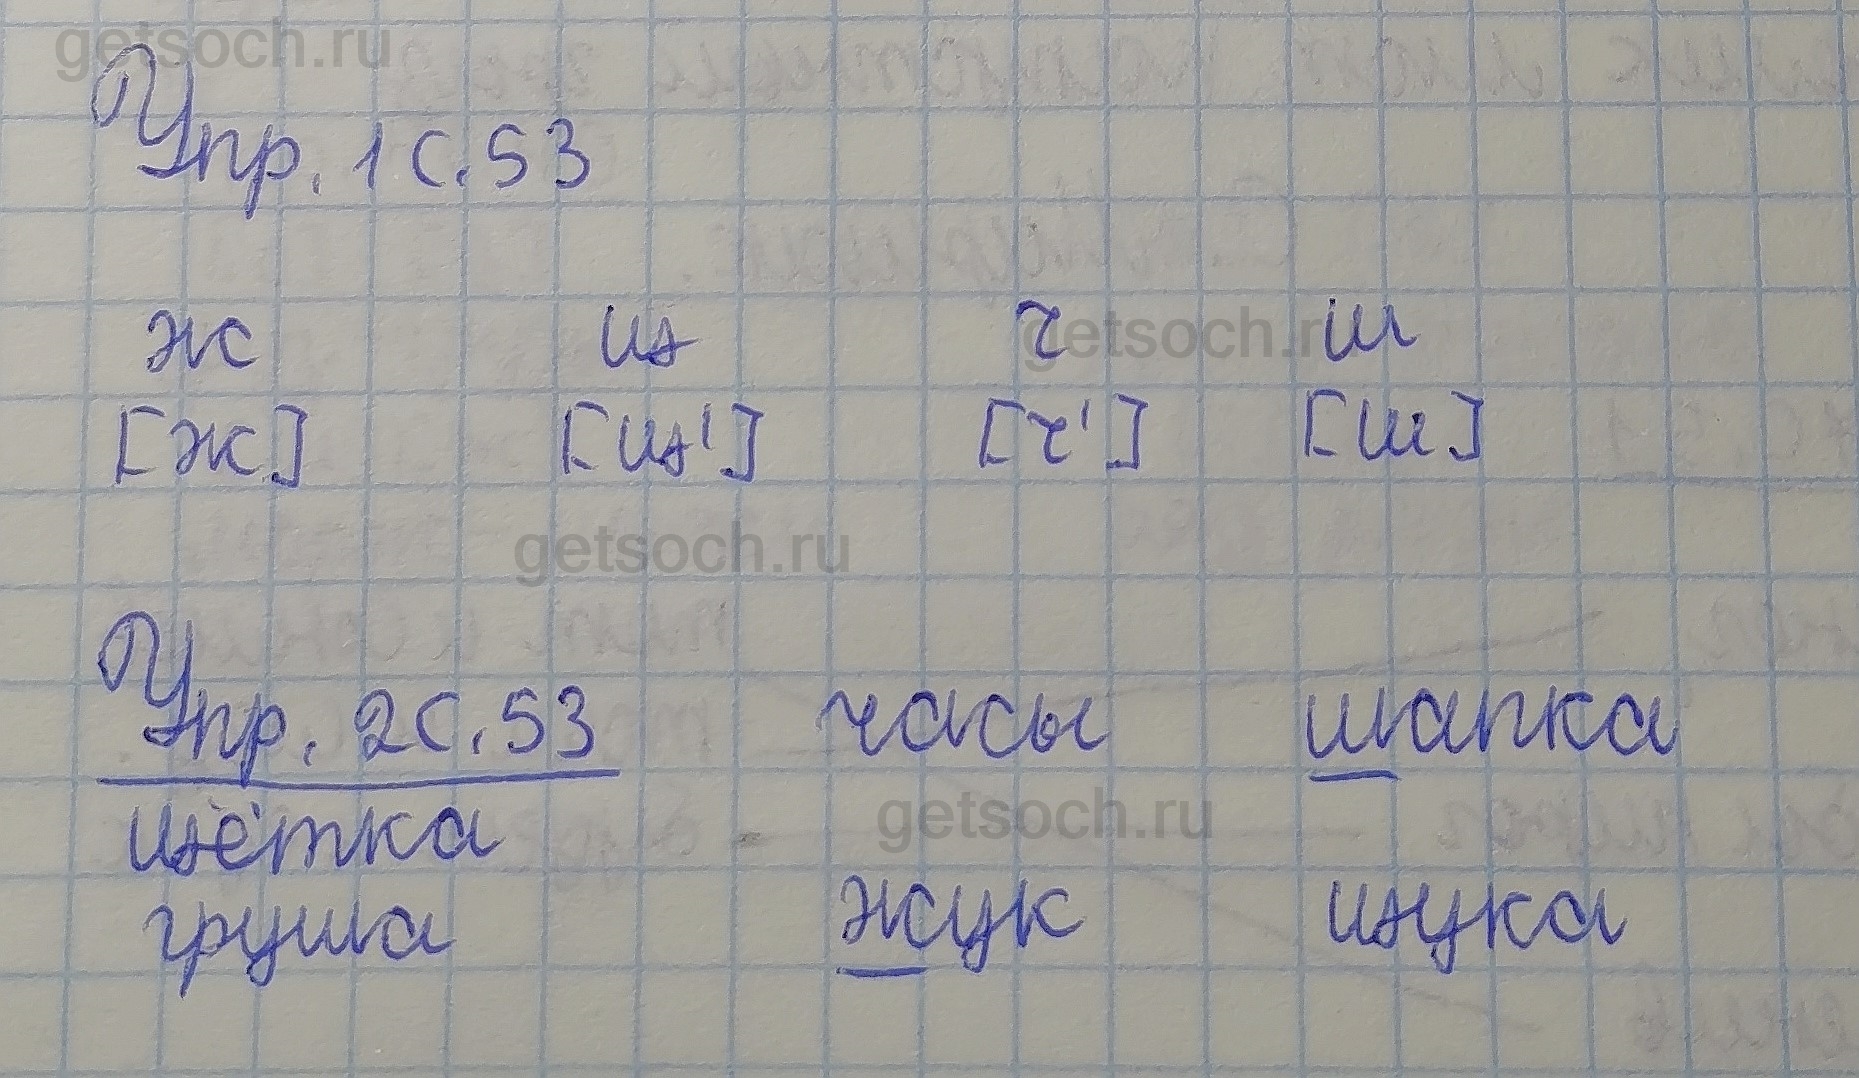 getsoch.ru
Упр. 1 с. 53
ж щ ч ш
getsoch.ru
[ж] [щ'] [ч'] [ш]
getsoch.ru
Упр. 2 с. 53 часы шапка
щётка
getsoch.ru
груша жук щука